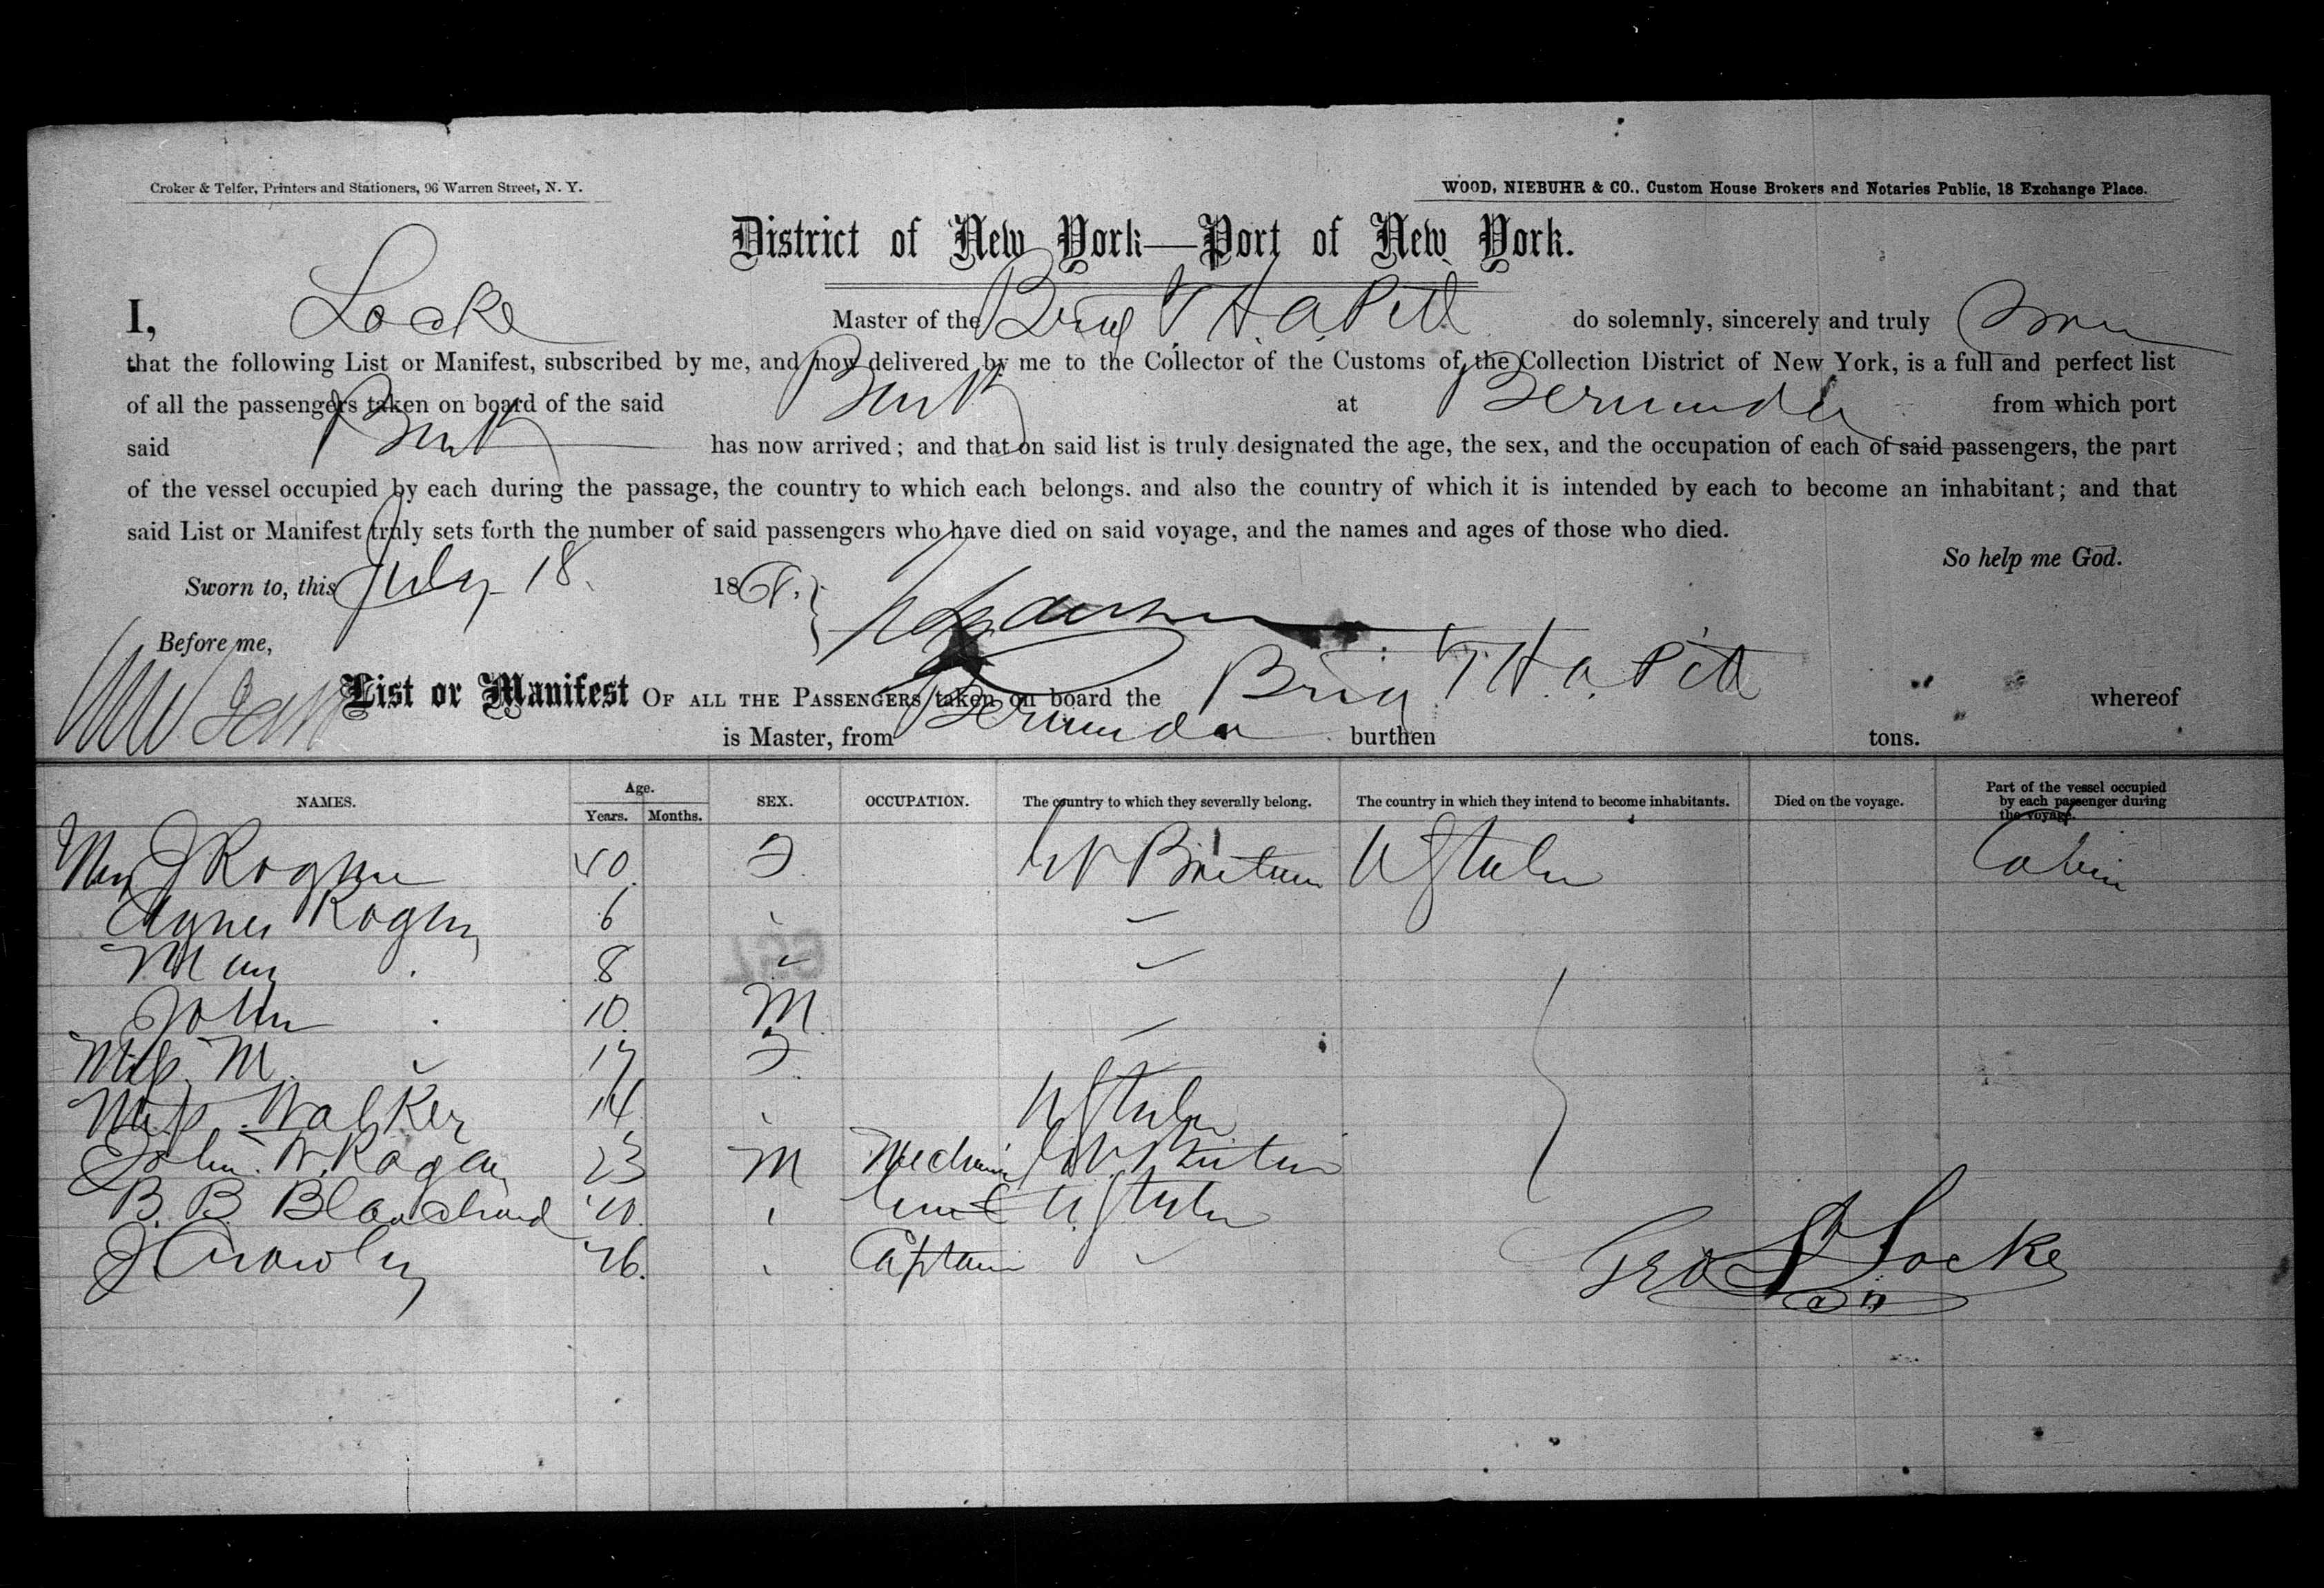 Croker & Telfer, Printers and Stationers, 96 Warren Street, N. Y.
WOOD, NIEBUHR & CO., Custom House Brokers and Notaries Public, 18 Exchange Place.
District of New York—Port of New York.
I, Locke Master of the Brig T. H. A. Pitt do solemnly, sincerely and truly
that the following List or Manifest, subscribed by me, and now delivered by me to the Collector of the Customs of the Collection District of New York, is a full and perfect list
of all the passengers taken on board of the said at Bermuda from which port
said has now arrived; and that on said list is truly designated the age, the sex, and the occupation of each of said passengers, the part
of the vessel occupied by each during the passage, the country to which each belongs. and also the country of which it is intended by each to become an inhabitant; and that
said List or Manifest truly sets forth the number of said passengers who have died on said voyage, and the names and ages of those who died.
So help me God.
Sworn to, this July 18. 186
Before me,
List or Manifest OF ALL THE PASSENGERS taken on board the Brig T. H. A. Pitt whereof
is Master, from Bermuda burthen tons.
NAMES. Age. Years. Months. SEX. OCCUPATION. The country to which they severally belong. The country in which they intend to become inhabitants. Died on the voyage. Part of the vessel occupied by each passenger during the voyage.
J 40 F Gr Britain U States Cabin
Agnes 6
Mary 8
John 10 M
Miss M. 17 F
Miss Walker 14 U States
John W. 23 M Mechanic Gr Britain
B. B. Blanchard 40 U States
J Crowley 26. Captain
Geo S Locke